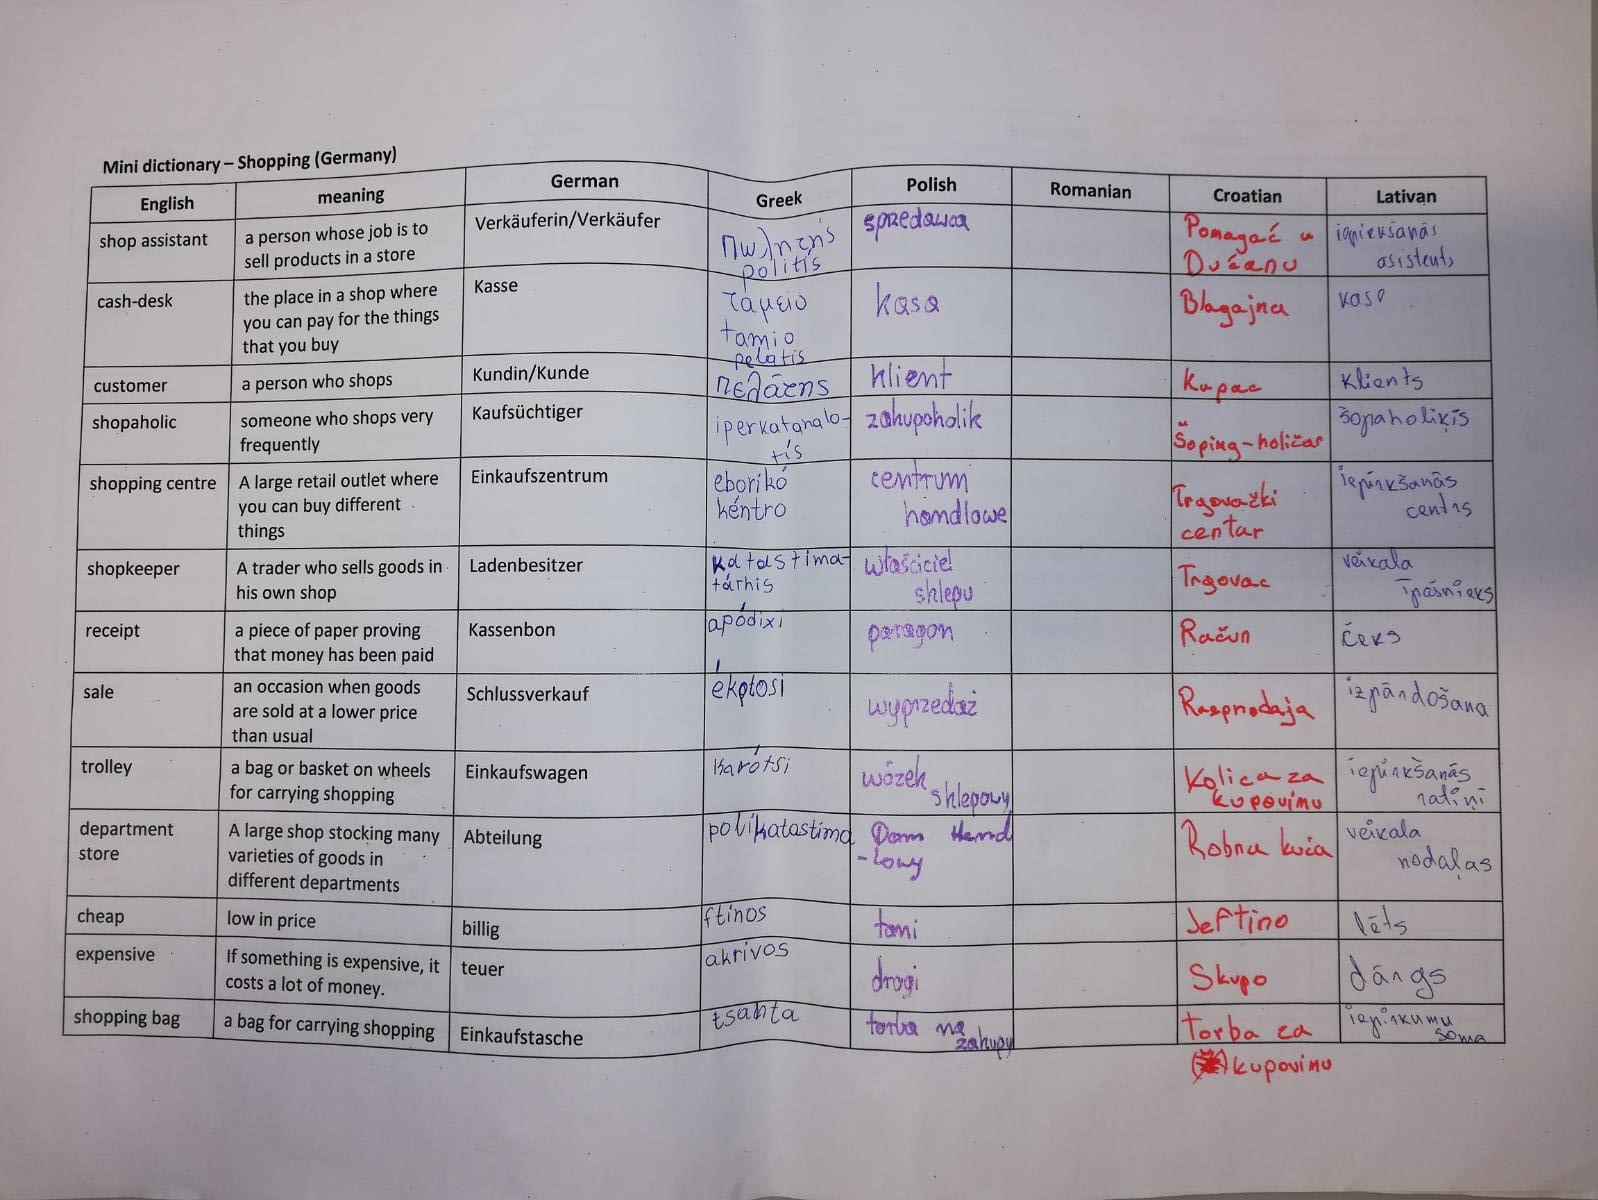 Mini dictionary – Shopping (Germany)
English meaning German Greek Polish Romanian Croatian Lativan
shop assistant
a person whose job is to
sell products in a store
Verkäuferin/Verkäufer
Πωλητής
politís
sprzedawca
Pomagać u
Dućanu
iepirkšanās
asistents
cash-desk
the place in a shop where
you can pay for the things
that you buy
Kasse
ταμείο
tamio
kasa
Blagajna
kase
customer
a person who shops
Kundin/Kunde
pelatis
πελάτης
klient
Kupac
klients
shopaholic
someone who shops very
frequently
Kaufsüchtiger
iperkatanalo-
tís
zakupoholik
Šoping-holičar
šopaholiķis
shopping centre
A large retail outlet where
you can buy different
things
Einkaufszentrum
eborikó
kéntro
centrum
handlowe
Trgovački
centar
iepirkšanās
centrs
shopkeeper
A trader who sells goods in
his own shop
Ladenbesitzer
katastima-
tárhis
właściciel
sklepu
Trgovac
veikala
īpašnieks
receipt
a piece of paper proving
that money has been paid
Kassenbon
apódixi
paragon
Račun
čeks
sale
an occasion when goods
are sold at a lower price
than usual
Schlussverkauf
ékptosi
wyprzedaż
Rasprodaja
izpārdošana
trolley
a bag or basket on wheels
for carrying shopping
Einkaufswagen
karótsi
wózek
sklepowy
Kolica za
kupovinu
iepirkšanās
ratiņi
department
store
A large shop stocking many
varieties of goods in
different departments
Abteilung
polikatastima
Dom Hand
-lowy
Robna kuća
veikala
nodaļas
cheap
low in price
billig
ftinos
tani
Jeftino
lēts
expensive
If something is expensive, it
costs a lot of money.
teuer
akrivos
drogi
Skupo
dārgs
shopping bag
a bag for carrying shopping
Einkaufstasche
tsanta
torba na
zakupy
torba za
kupovinu
iepirkumu
soma